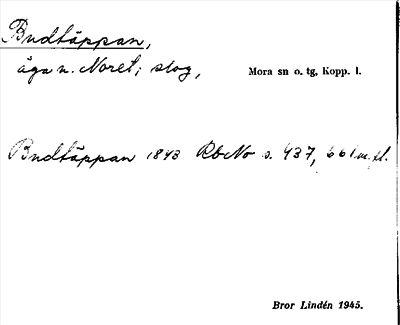 Budtäppan,
äga n. Noret; skog,
Mora sn o. tg, Kopp. l.
Budtäppan 1843 RbNo s. 437, 661 m.fl.
Bror Lindén 1945.